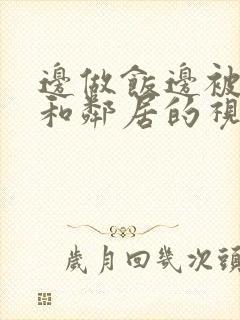 邊做飯邊被
和鄰居的視
歲月回幾次頭